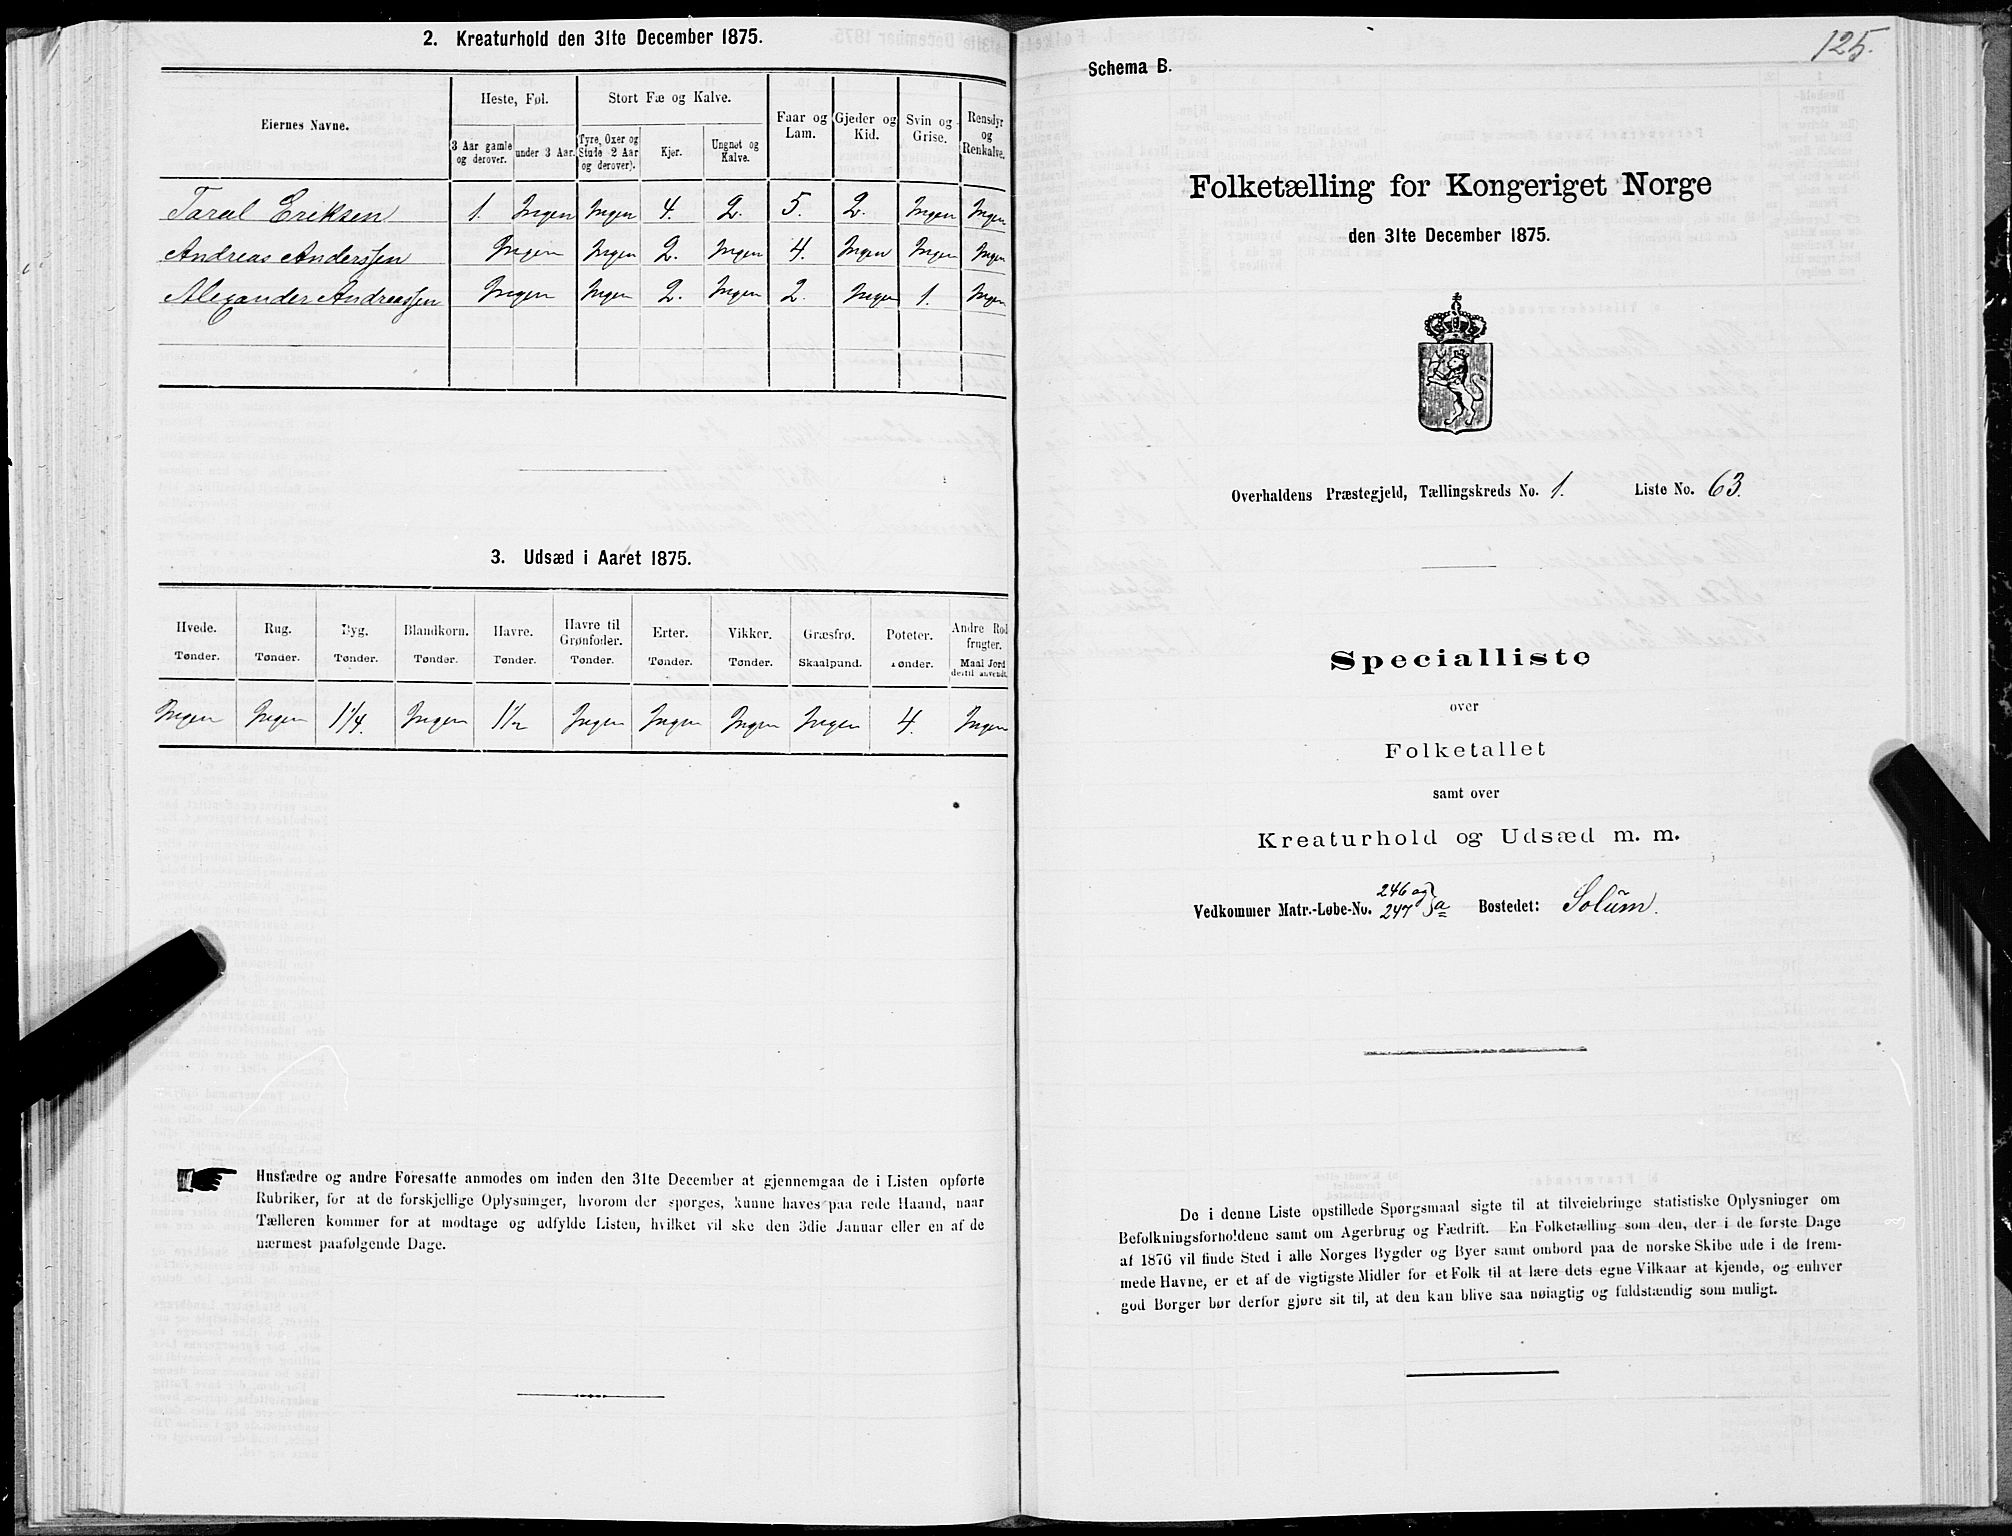 2. Kreaturhold den 31te December 1875.
Eiernes Navne.
Heste, Føl.
Stort Fæ og Kalve.
Faar og Lam.
Gjeder og Kid.
Svin og Grise.
Rensdyr og Renkalve.
3 Aar gamle og derover.
under 3 Aar.
Tyre, Oxer og Stude 2 Aar og derover).
Kjer.
Ungnøt og Kalve.
Taral Eriksen 1. Ingen Ingen 4. 2. 5. 2. Ingen Ingen
Andreas Anderssen Ingen Ingen 2. Ingen 4. Ingen Ingen Ingen
Alexander Andreassen Ingen Ingen 2. Ingen 2. Ingen 1. Ingen
3. Udsæd i Aaret 1875.
Hvede. Rug. Byg. Blandkorn. Havre. Havre til Grønfoder. Erter. Vikker. Græsfrø. Poteter. Andre Rodfrugter.
Tønder. Tønder. Tønder. Tønder. Tønder. Tønder. Tønder. Tønder. Skaalpund. Tønder. Maal Jord dertil anvendt.
Ingen Ingen 1 1/4. Ingen 1 1/2 Ingen Ingen Ingen Ingen 4. Ingen
Husfædre og andre Foresatte anmodes om inden den 31te December at gjennemgaa de i Listen opførte
Rubriker, for at de forskjellige Oplysninger, hvorom der spørges, kunne haves paa rede Haand, naar
Tælleren kommer for at modtage og udfylde Listen, hvilket vil ske den 3die Januar eller en af de
nærmest paafølgende Dage.
125.
Schema B.
Folketælling for Kongeriget Norge
den 31te December 1875.
Overhaldens Præstegjeld, Tællingskreds No. 1. Liste No. 63.
Specialliste
over
Folketallet
samt over
Kreaturhold og Udsæd m. m.
Vedkommer Matr.-Løbe-No. 246 og 247 a Bostedet: Solum.
De i denne Liste opstillede Spørgsmaal sigte til at tilveiebringe statistiske Oplysninger om
Befolkningsforholdene samt om Agerbrug og Fædrift. En Folketælling som den, der i de første Dage
af 1876 vil finde Sted i alle Norges Bygder og Byer samt ombord paa de norske Skibe ude i de frem-
mede Havne, er et af de vigtigste Midler for et Folk til at lære dets egne Vilkaar at kjende, og enhver
god Borger bør derfor gjøre sit til, at den kan blive saa nøiagtig og fuldstændig som muligt.